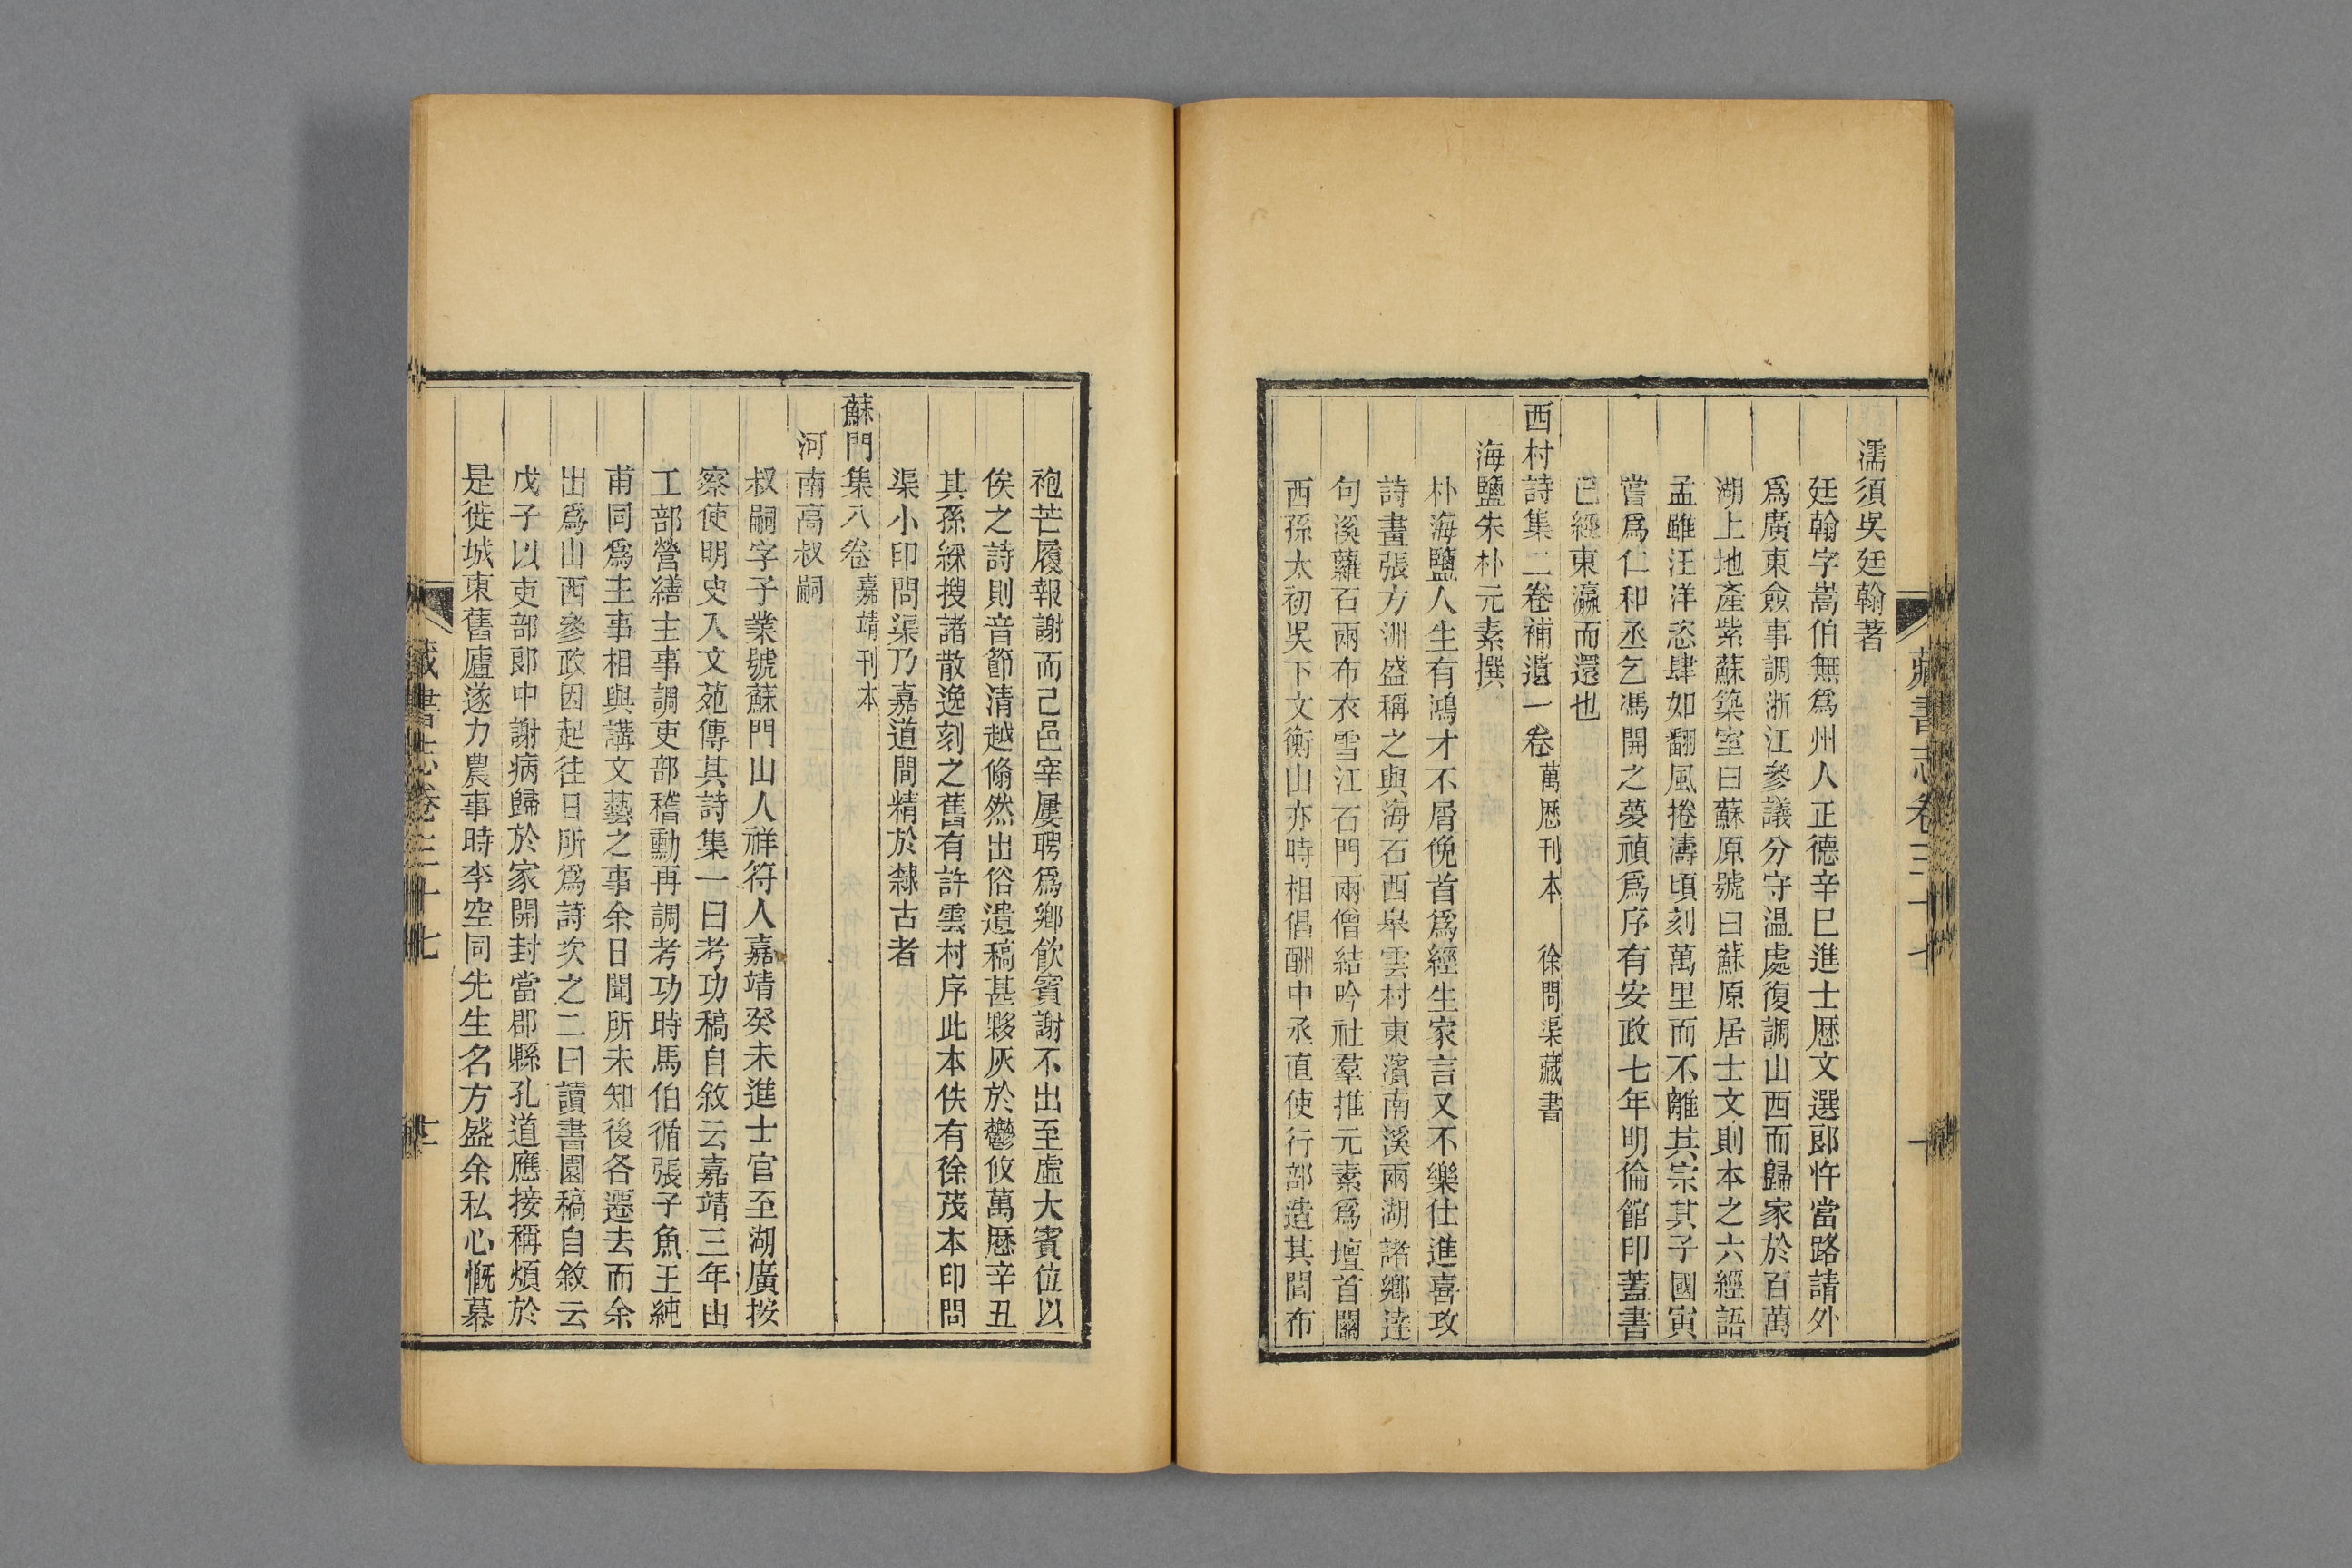 藏書志卷三十七
濡須吳廷翰著
廷翰字嵩伯無爲州人正德辛巳進士歷文選郎忤當路請外
爲廣東僉事調浙江參議分守溫處復調山西而歸家於百萬
湖上地產紫蘇築室曰蘇原號曰蘇原居士文則本之六經語
孟雖汪洋恣肆如翻風捲濤頃刻萬里而不離其宗其子國寅
嘗爲仁和丞乞馮開之夢禎爲序有安政七年明倫館印蓋書
已經東瀛而還也
西村詩集二卷補遺一卷 萬歷刊本 徐問渠藏書
海鹽朱朴元素撰
朴海鹽人生有鴻才不屑俛首爲經生家言又不樂仕進喜攻
詩書張方洲盛稱之與海石西皋雲村東濱南溪兩湖諸鄉達
句溪蘿石兩布衣雪江石門兩僧結吟社羣推元素爲壇首關
西孫太初吳下文衡山亦時相倡酬中丞直使行部造其閭布
袍芒履報謝而已邑宰屢聘爲鄉飲賓謝不出至虛大賓位以
俟之詩則音節清越翛然出俗遺稿甚夥灰於鬱攸萬歷辛丑
其孫綵搜諸散逸刻之舊有許雲村序此本佚有徐茂本印問
渠小印問渠乃嘉道間精於隸古者
蘇門集八卷 嘉靖刊本
河南高叔嗣
叔嗣字子業號蘇門山人祥符人嘉靖癸未進士官至湖廣按
察使明史入文苑傳其詩集一曰考功稿自敘云嘉靖三年由
工部營繕主事調吏部稽勳再調考功時馬伯循張子魚王純
甫同爲主事相與講文藝之事余日聞所未知後各遷去而余
出爲山西參政因起往日所爲詩次之二曰讀書園稿自敘云
戊子以吏部郎中謝病歸於家開封當郡縣孔道應接稱煩於
是徙城東舊廬遂力農事時李空同先生名方盛余私心慨慕
藏書志卷三十七